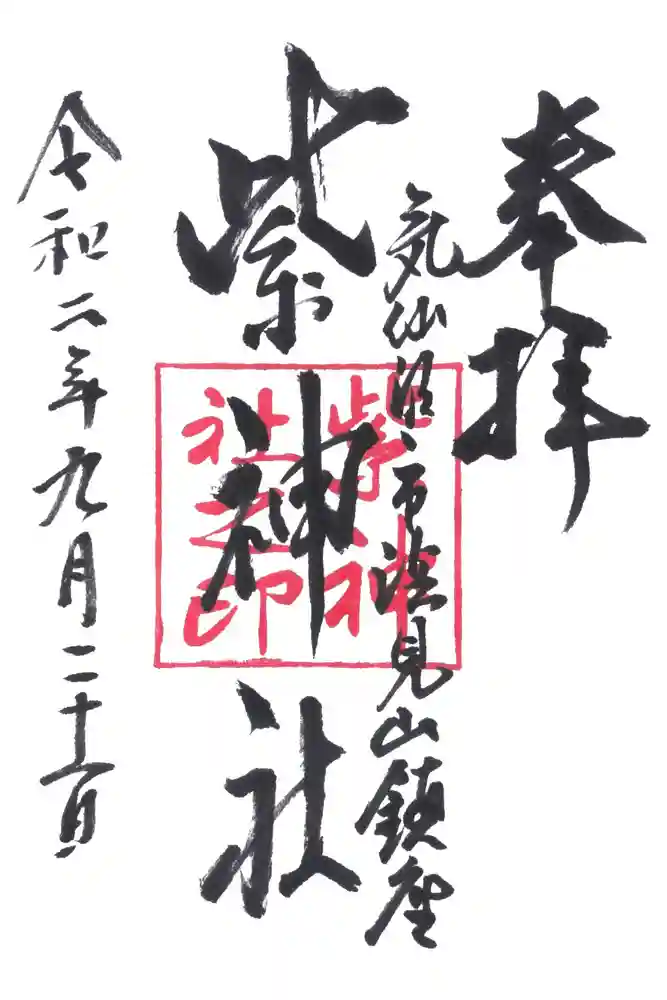 奉拝
気仙沼市濱見山鎮座
紫神社
紫神
社之印
令和二年九月二十一日